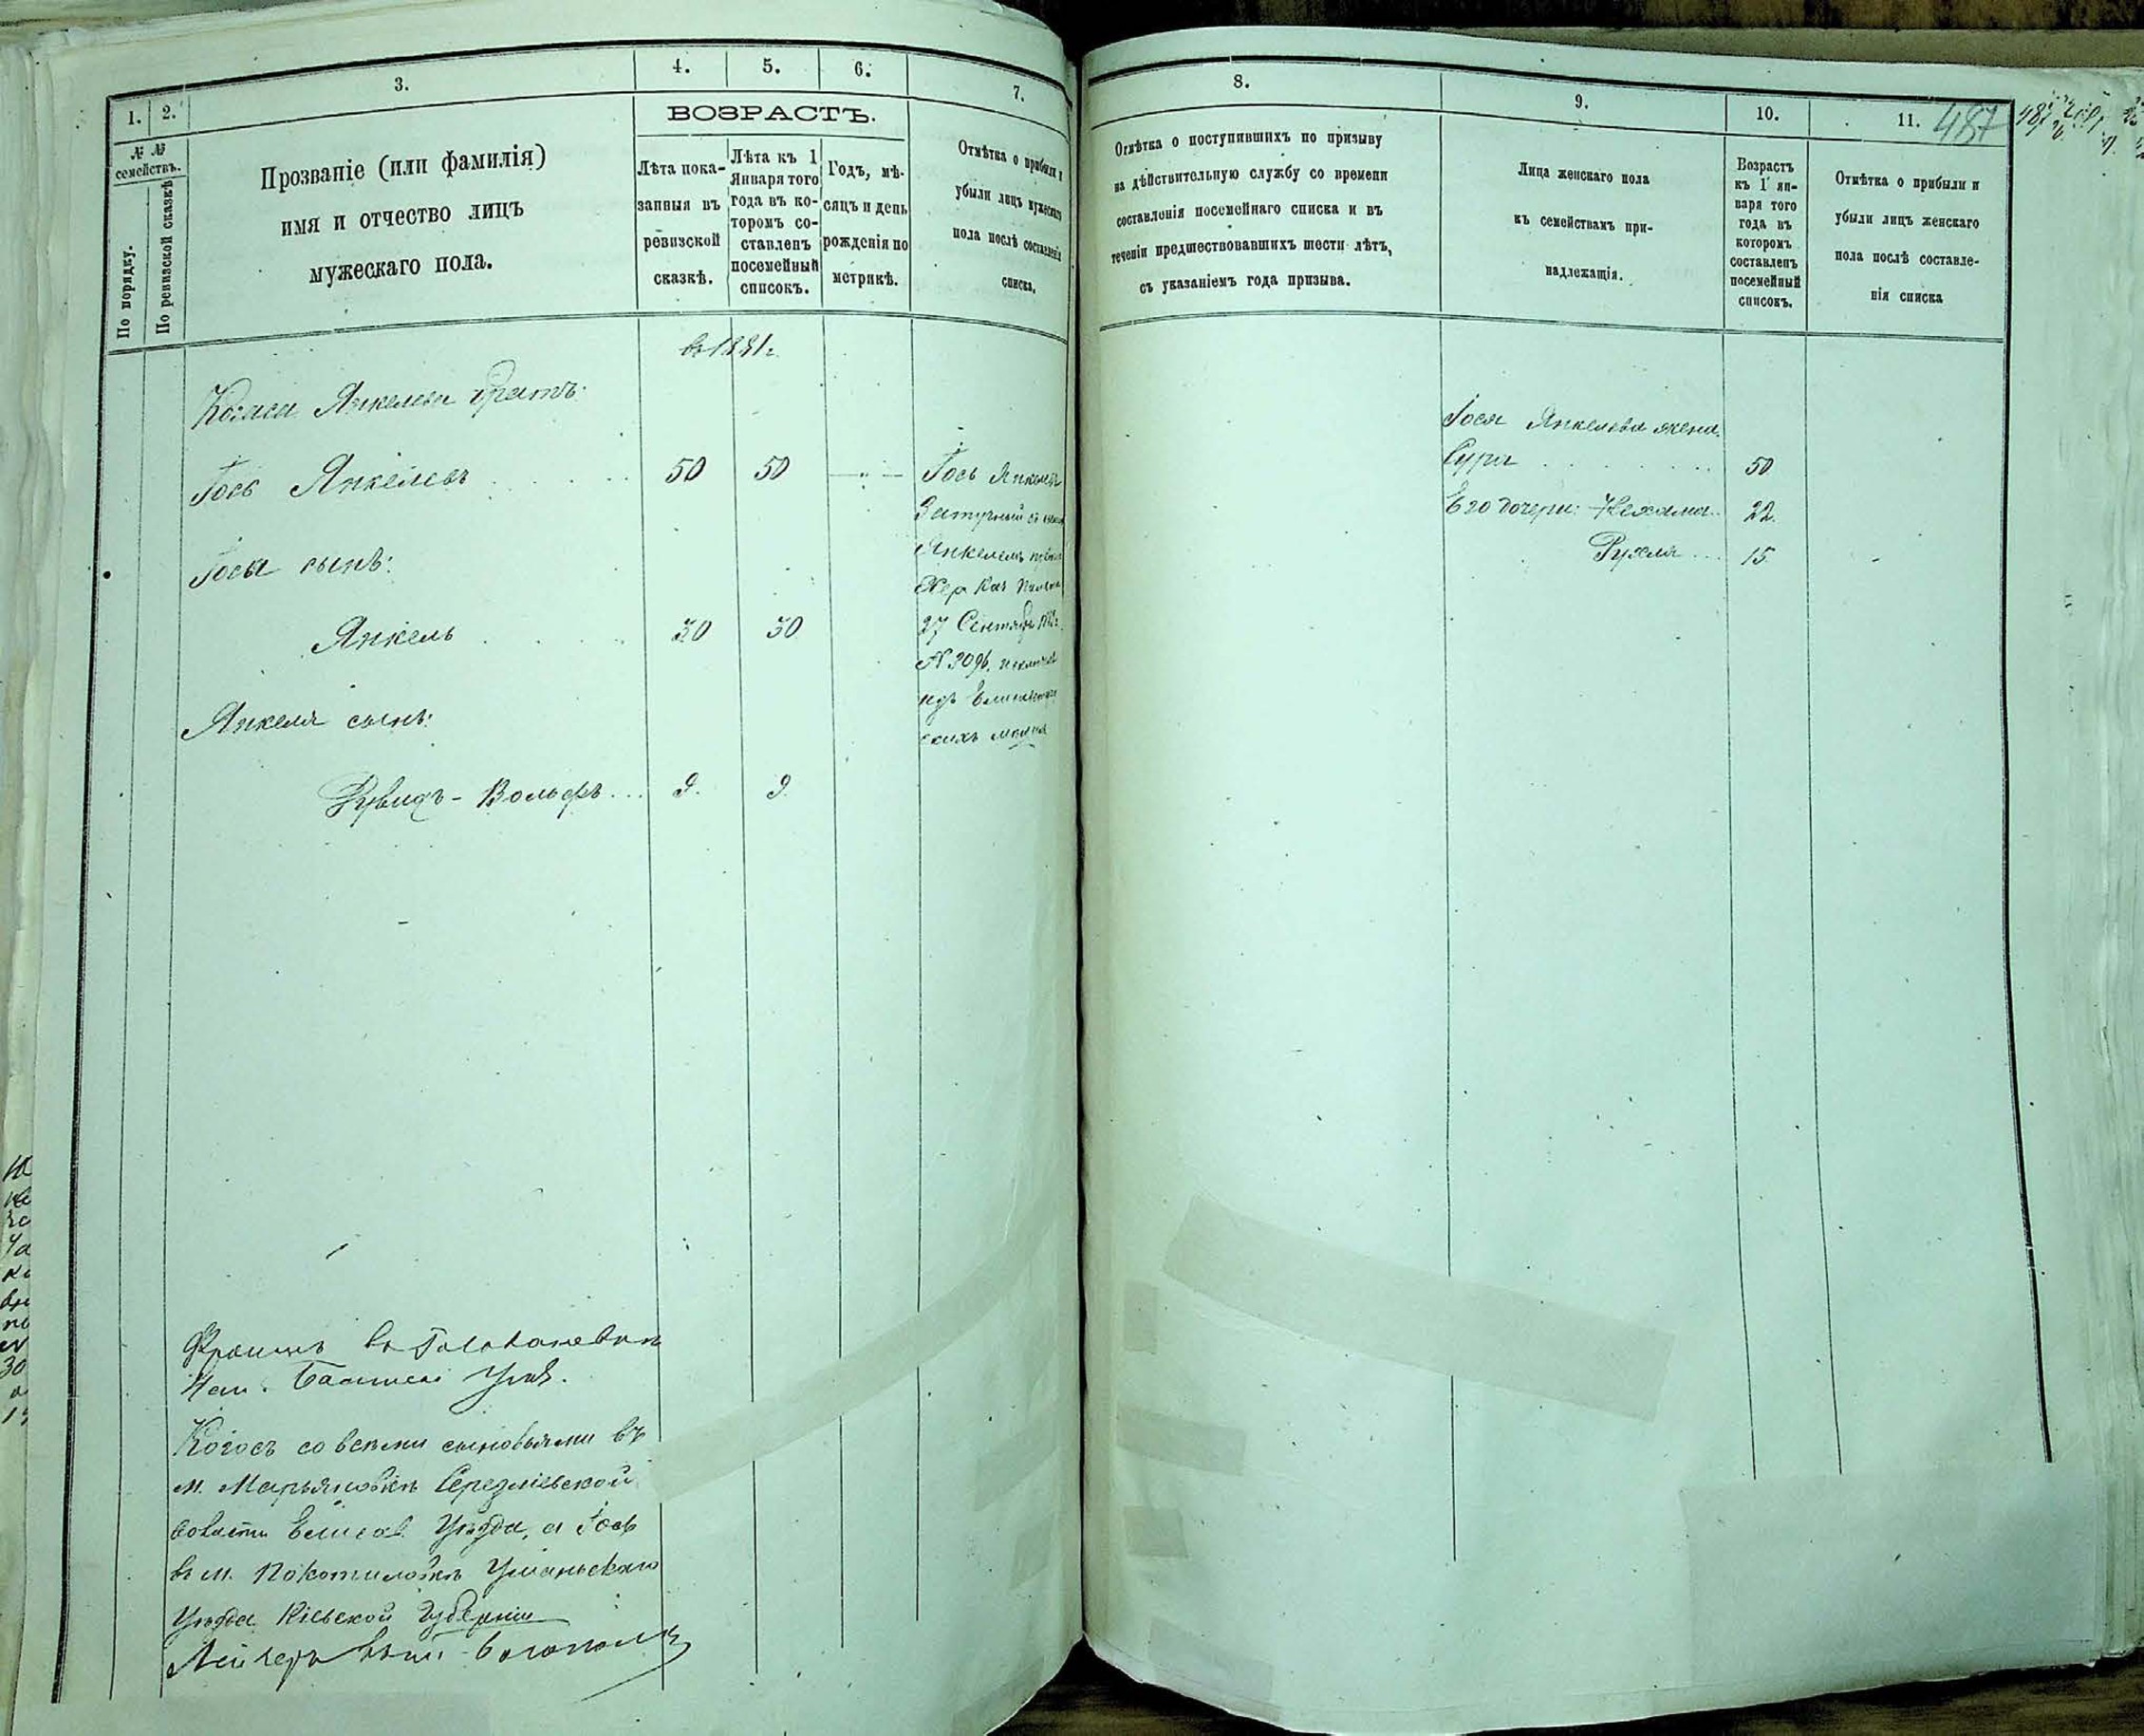 1.
2.
3.
4.
5.
6.
7.
№ №
семействъ.
По порядку.
По ревизской сказкѣ
Прозваніе (или фамилія)
имя и отчество лицъ
мужескаго пола.
ВОЗРАСТЪ.
Лѣта пока-
занныя въ
ревизской
сказкѣ.
Лѣта къ 1
Января того
года въ ко-
торомъ со-
ставленъ
посемейный
списокъ.
Годъ, мѣ-
сяцъ и день
рожденія по
метрикѣ.
Отмѣтка о прибыли и
убыли лицъ мужескаго
пола послѣ составленія
списка.
въ 1881 г.
Янкелева братъ:
Іось Янкелевъ 50 50
Іося сынъ:
Янкель 30 30
Янкеля сынъ:
Рувидъ-Вольфъ 9. 9
Іось Янкелев
Янкелемъ
Хер Каз
27 Сентяб
№ 3096.
изъ
скихъ мещан
въ Голованевск
Балтск
Когосъ со всеми сыновьями въ
м. Марьяновкѣ
волости Елисав Уѣзда, а Іось
въ м. Покотиловкѣ Уманьскаго
Уѣзда Кіевской Губерніи
8.
9.
10.
11.
487
Отмѣтка о поступившихъ по призыву
на дѣйствительную службу со времени
составленія посемейнаго списка и въ
теченіи предшествовавшихъ шести лѣтъ,
съ указаніемъ года призыва.
Лица женскаго пола
къ семействамъ при-
надлежащія.
Возрастъ
къ 1 ян-
варя того
года въ
которомъ
составленъ
посемейный
списокъ.
Отмѣтка о прибыли и
убыли лицъ женскаго
пола послѣ составле-
нія списка
Іося Янкелева жена
Сура 50
Его дочери: Нехама 22
Рухля 15